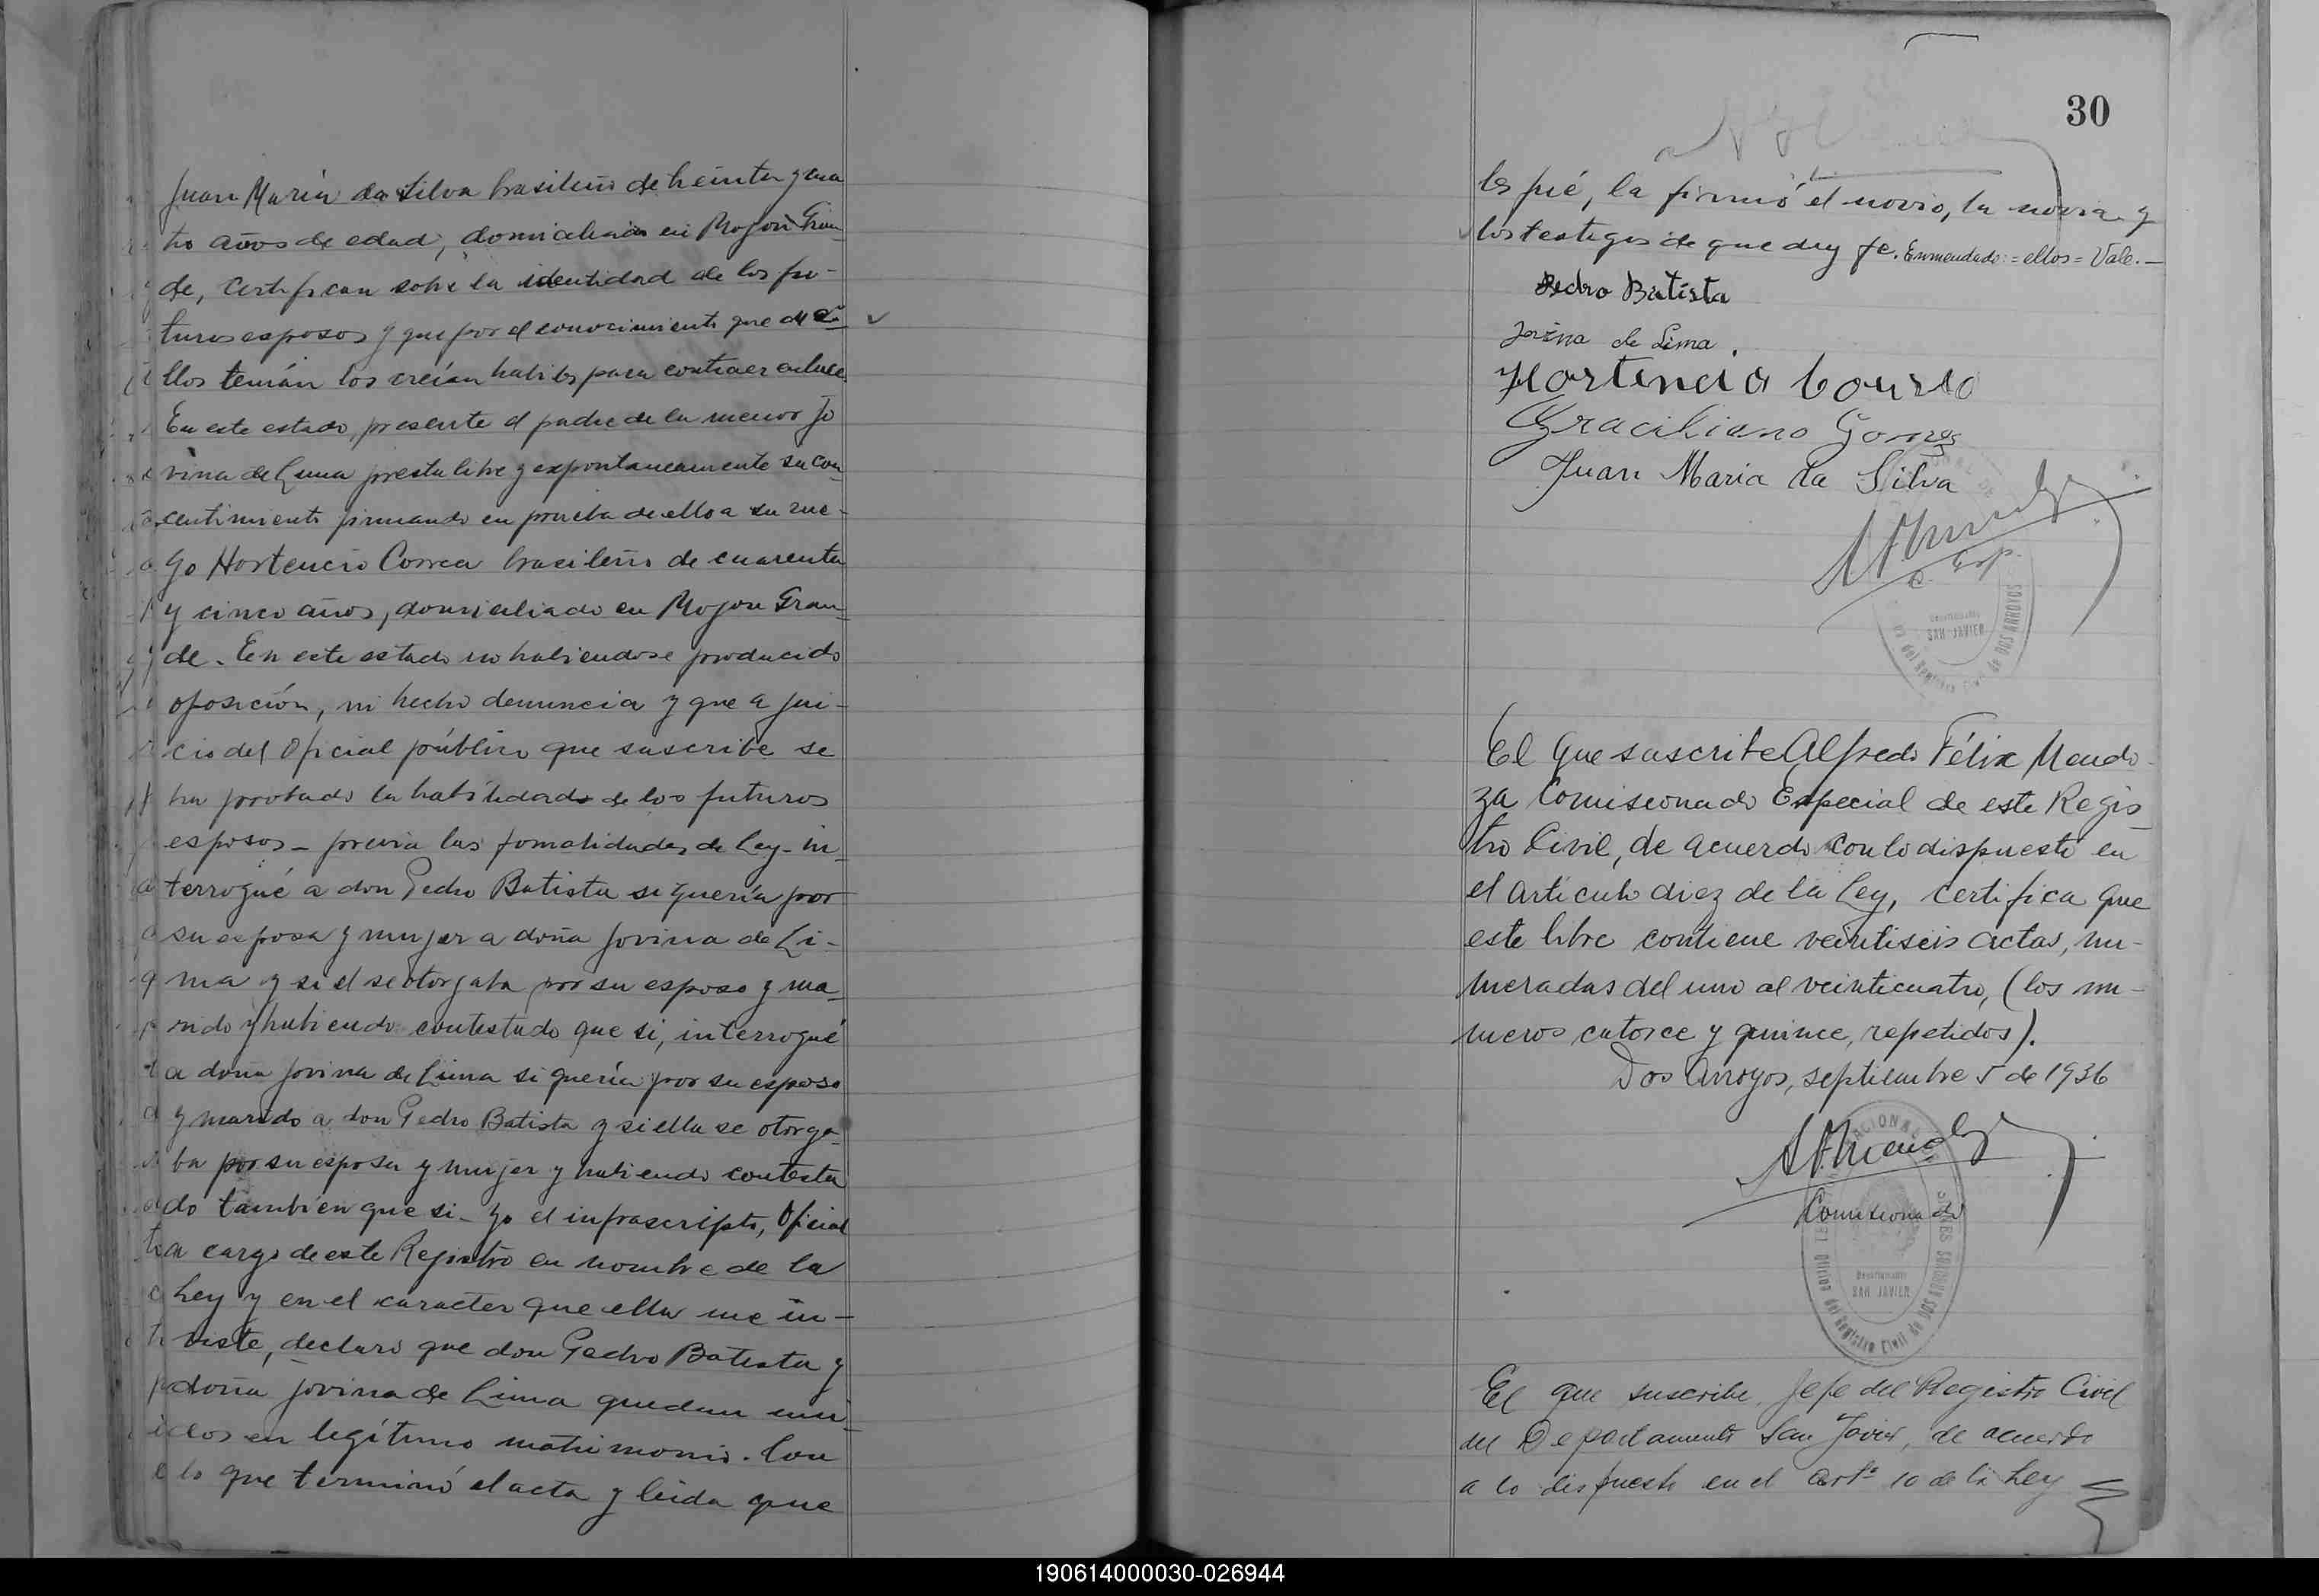 Juan María da Silva brasileño de treinta y cua
tro años de edad, domiciliado en Mojon Gran
de, certifican sobre la identidad de los fu-
turos esposos y que por el conocimiento que de e
llos tenían los creían habiles para contraer enlace.
En este estado, presente el padre de la menor Jo
vina de Lima presta libre y expontaneamente su con
centimiento firmando en prueba de ello a su rue-
go Hortencio Correa brasileño de cuarenta
y cinco años, domiciliado en Mojon Gran
de. En este estado no habiendose producido
oposición, ni hecho denuncia y que a jui-
cio del Oficial público que suscribe se
ha probado la habilidad de los futuros
esposos - previa las fomalidades de Ley - in
terrogué a don Pedro Batista si quería por
su esposa y mujer a doña Jovina de Li-
ma y si el se otorgaba por su esposo y ma-
rido y habiendo contestado que si, interrogué
a doña Jovina de Lima si quería por su esposo
y marido a don Pedro Batista y si ella se otorga-
ba por su esposa y mujer y habiendo contesta
do también que si - Yo el infrascripto, Oficial
a cargo de este Registro en nombre de la
Ley y en el caracter que ella me in-
viste, declaro que don Pedro Batista y
doña Jovina de Lima quedan uni-
dos en legítimo matrimonio. Con
lo que terminó el acta y leida que
30
les fué, la firmó el novio, la novia y
los testigos de que doy fe. Enmendado: = ellos = Vale. -
Pedro Batista
Jovina de Lima.
Hortencio Correa
Graciliano Gomes
Juan Maria da Silva
C. Esp.
SAN JAVIER
DOS ARROYOS
El que suscribe Alfredo Félix Mendo-
za Comisionado Especial de este Regis
tro Civil, de acuerdo con lo dispuesto en
el artículo diez de la Ley, certifica que
este libro contiene veintiseis actas, nu-
meradas del uno al veinticuatro, (los nu-
meros catorce y quince, repetidos).
Dos Arroyos, septiembre 5 de 1936
Comisionado
Departamento
SAN JAVIER
Oficina del Registro Civil de DOS ARROYOS
El que suscribe, Jefe del Registro Civil
del Departamento San Javier, de acuerdo
a lo dispuesto en el artº 10 de la Ley
190614000030-026944